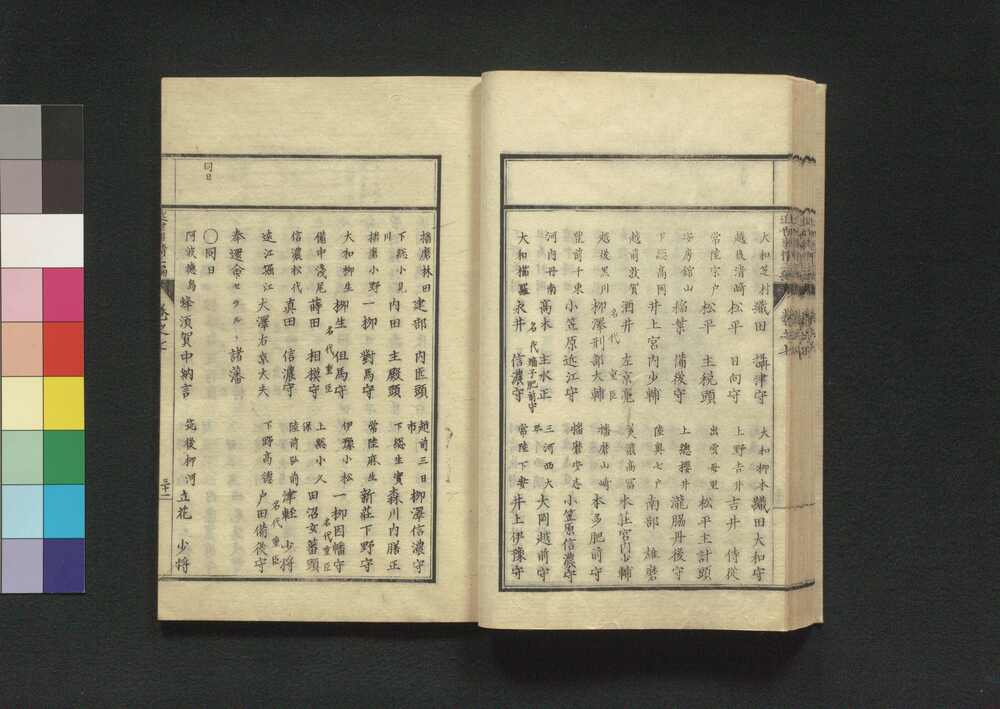 大和芝村 織田 攝津守 大和柳本 織田大和守
越後清崎 松平 日向守 上野吉井 吉井 侍從
常陸宗戸 松平 主税頭 出雲母里 松平主計頭
安房舘山 稲葉 備後守 上總櫻井 瀧脇丹後守
下總高岡 井上宮内少輔 陸奥七戸 南部 雄麿
越前敦賀 酒井 左京亮 名代 重臣 美濃高冨 本莊宮内少輔
越後黒川 柳澤刑部大輔 播磨山崎 本多肥前守
豐前千束 小笠原近江守 播磨安志 小笠原信濃守
河内丹南 高木 主水正 名代 端子肥前守 三河西大平 大岡越前守
大和櫛羅 永井 信濃守 常陸下妻 井上伊豫守
播磨林田 建部 内匠頭 越前三日市 柳澤信濃守
下總小見川 内田 主殿頭 下總生實 森川内膳正
播磨小野 一柳 對馬守 常陸麻生 新莊下野守
大和柳生 柳生 但馬守 名代重臣 伊豫小松 一柳因幡守 名代重臣
備中淺尾 蒔田 相模守 上總小久保 田沼玄蕃頭
信濃松代 真田 信濃守 陸前弘前 津軽 少将 名代重臣
遠江堀江 大澤右京大夫 下野高德 戸田備後守
奉還命セラルヽ諸藩
同日
〇同日
阿波徳島 蜂須賀中納言 筑後柳河 立花 少将
卷之七 三十二